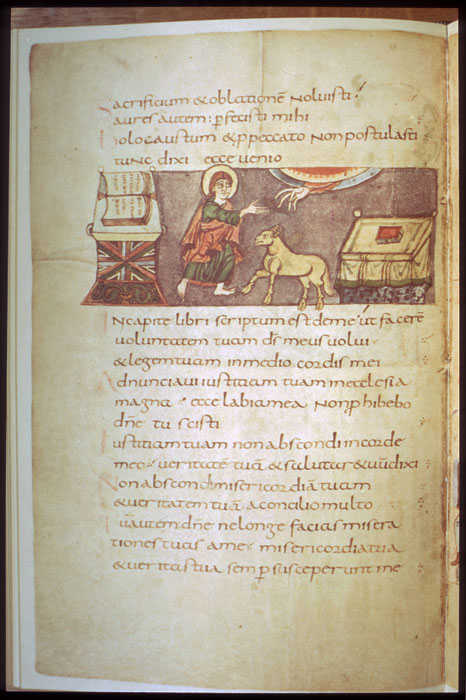 Sacrificium & oblationē noluisti
aures autem: pfecisti mihi
holocaustum & p peccato non postulasti
tunc dixi ecce uenio
INcapite libri scriptum est deme ut facerē
uoluntatem tuam ds meus uolui
& legem tuam in medio cordis mei
Adnunciaui iustitiam tuam in eclesia
magna ecce labia mea non phibebo
dne tu scisti
Iustitiam tuam non abscondi in corde
meo ueritatē tuā & salutare &uū dixi
Non abscondi misericordiā tuam
& ueritatem tuā a concilio multo
Tu autem dne ne longe facias misera
tiones tuas a me misericordia tua
& ueritas tua semp susceperunt me